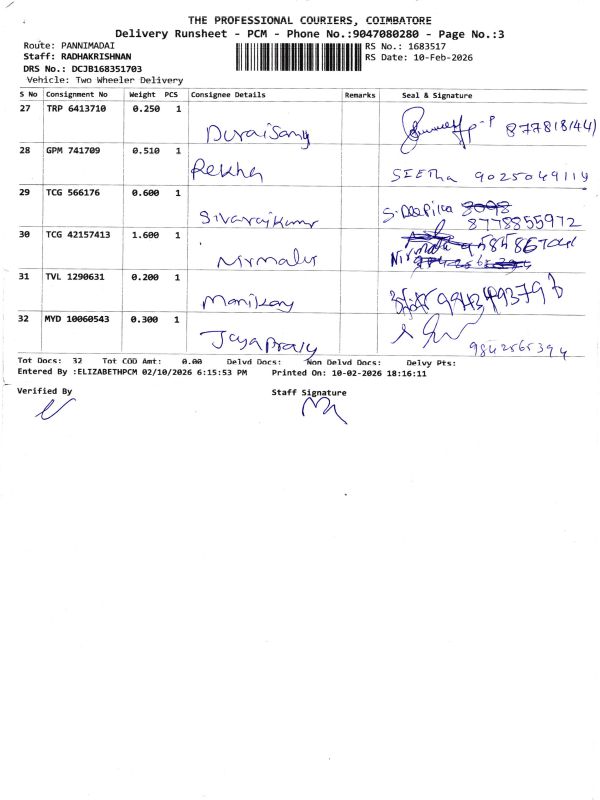 THE PROFESSIONAL COURIERS, COIMBATORE
Delivery Runsheet - PCM - Phone No.:9047080280 - Page No.:3
Route: PANNIMADAI
RS No.: 1683517
Staff: RADHAKRISHNAN
RS Date: 10-Feb-2026
DRS No.: DCJB168351703
Vehicle: Two Wheeler Delivery
S No Consignment No Weight PCS Consignee Details Remarks Seal & Signature
27 TRP 6413710 0.250 1
Duraisamy
28 GPM 741709 0.510 1
Rekha SEETha 9025049119
29 TCG 566176 0.600 1
Sivarajkumar S.Deepika 8778855972
30 TCG 42157413 1.600 1
Nirmala Nirmala
31 TVL 1290631 0.200 1
Manikary
32 MYD 10060543 0.300 1
Jayapraly 9842565394
Tot Docs: 32 Tot COD Amt: 0.00 Delvd Docs: Non Delvd Docs: Delvy Pts:
Entered By :ELIZABETHPCM 02/10/2026 6:15:53 PM Printed On: 10-02-2026 18:16:11
Verified By Staff Signature